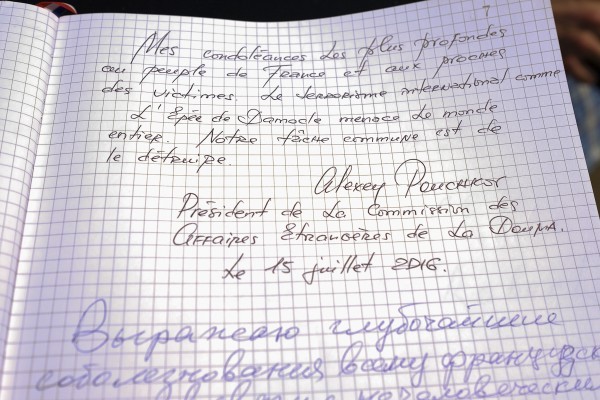 7
Mes condoléances les plus profondes
au peuple de France et aux proches
des victimes. Le terrorisme international comme
L'Epée de Damocle menace le monde
entier. Notre tâche commune est de
le détruire.
Alexey Pouchkov
Président de la Commission des
Affaires Etrangères de la Douma.
Le 15 juillet 2016.
Выражаю глубочайшие
соболезнования всему французск